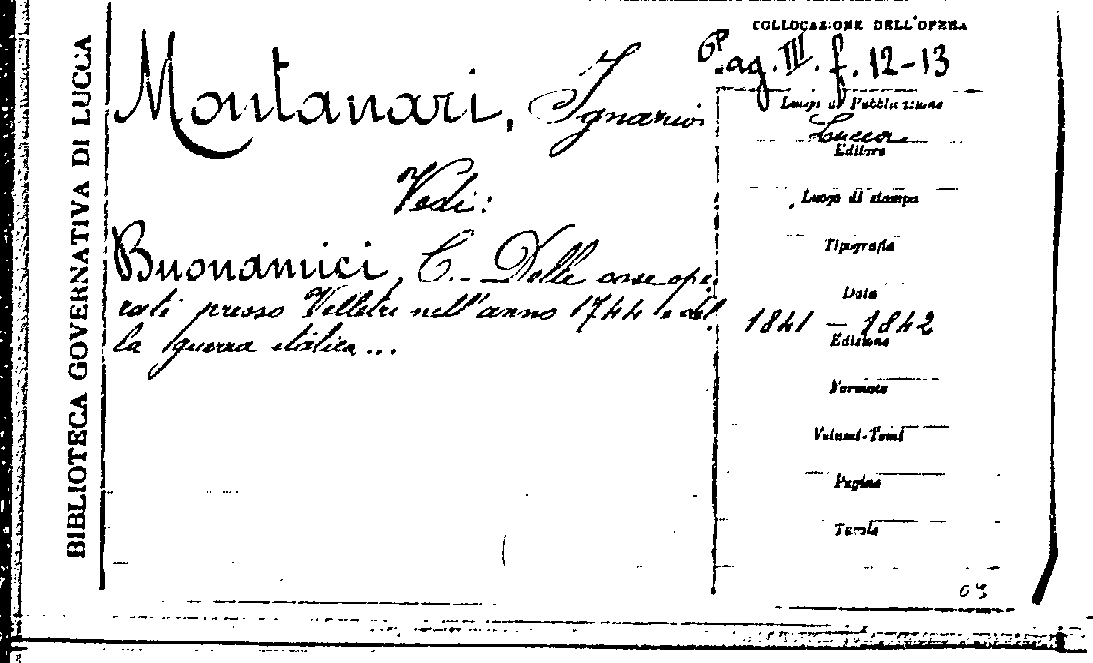 BIBLIOTECA GOVERNATIVA DI LUCCA
Montanari, Ignazio
Vedi:
Buonamici, C. - Delle cose ope-
rate presso Velletri nell'anno 1744 e del-
la guerra italica...
COLLOCAZIONE DELL'OPERA
ag. III. f. 12-13
Luogo di Pubblicazione
Lucca
Editore
Luogo di stampa
Tipografia
Data
1841 - 1842
Edizione
Formato
Volumi-Tomi
Pagine
Tavole